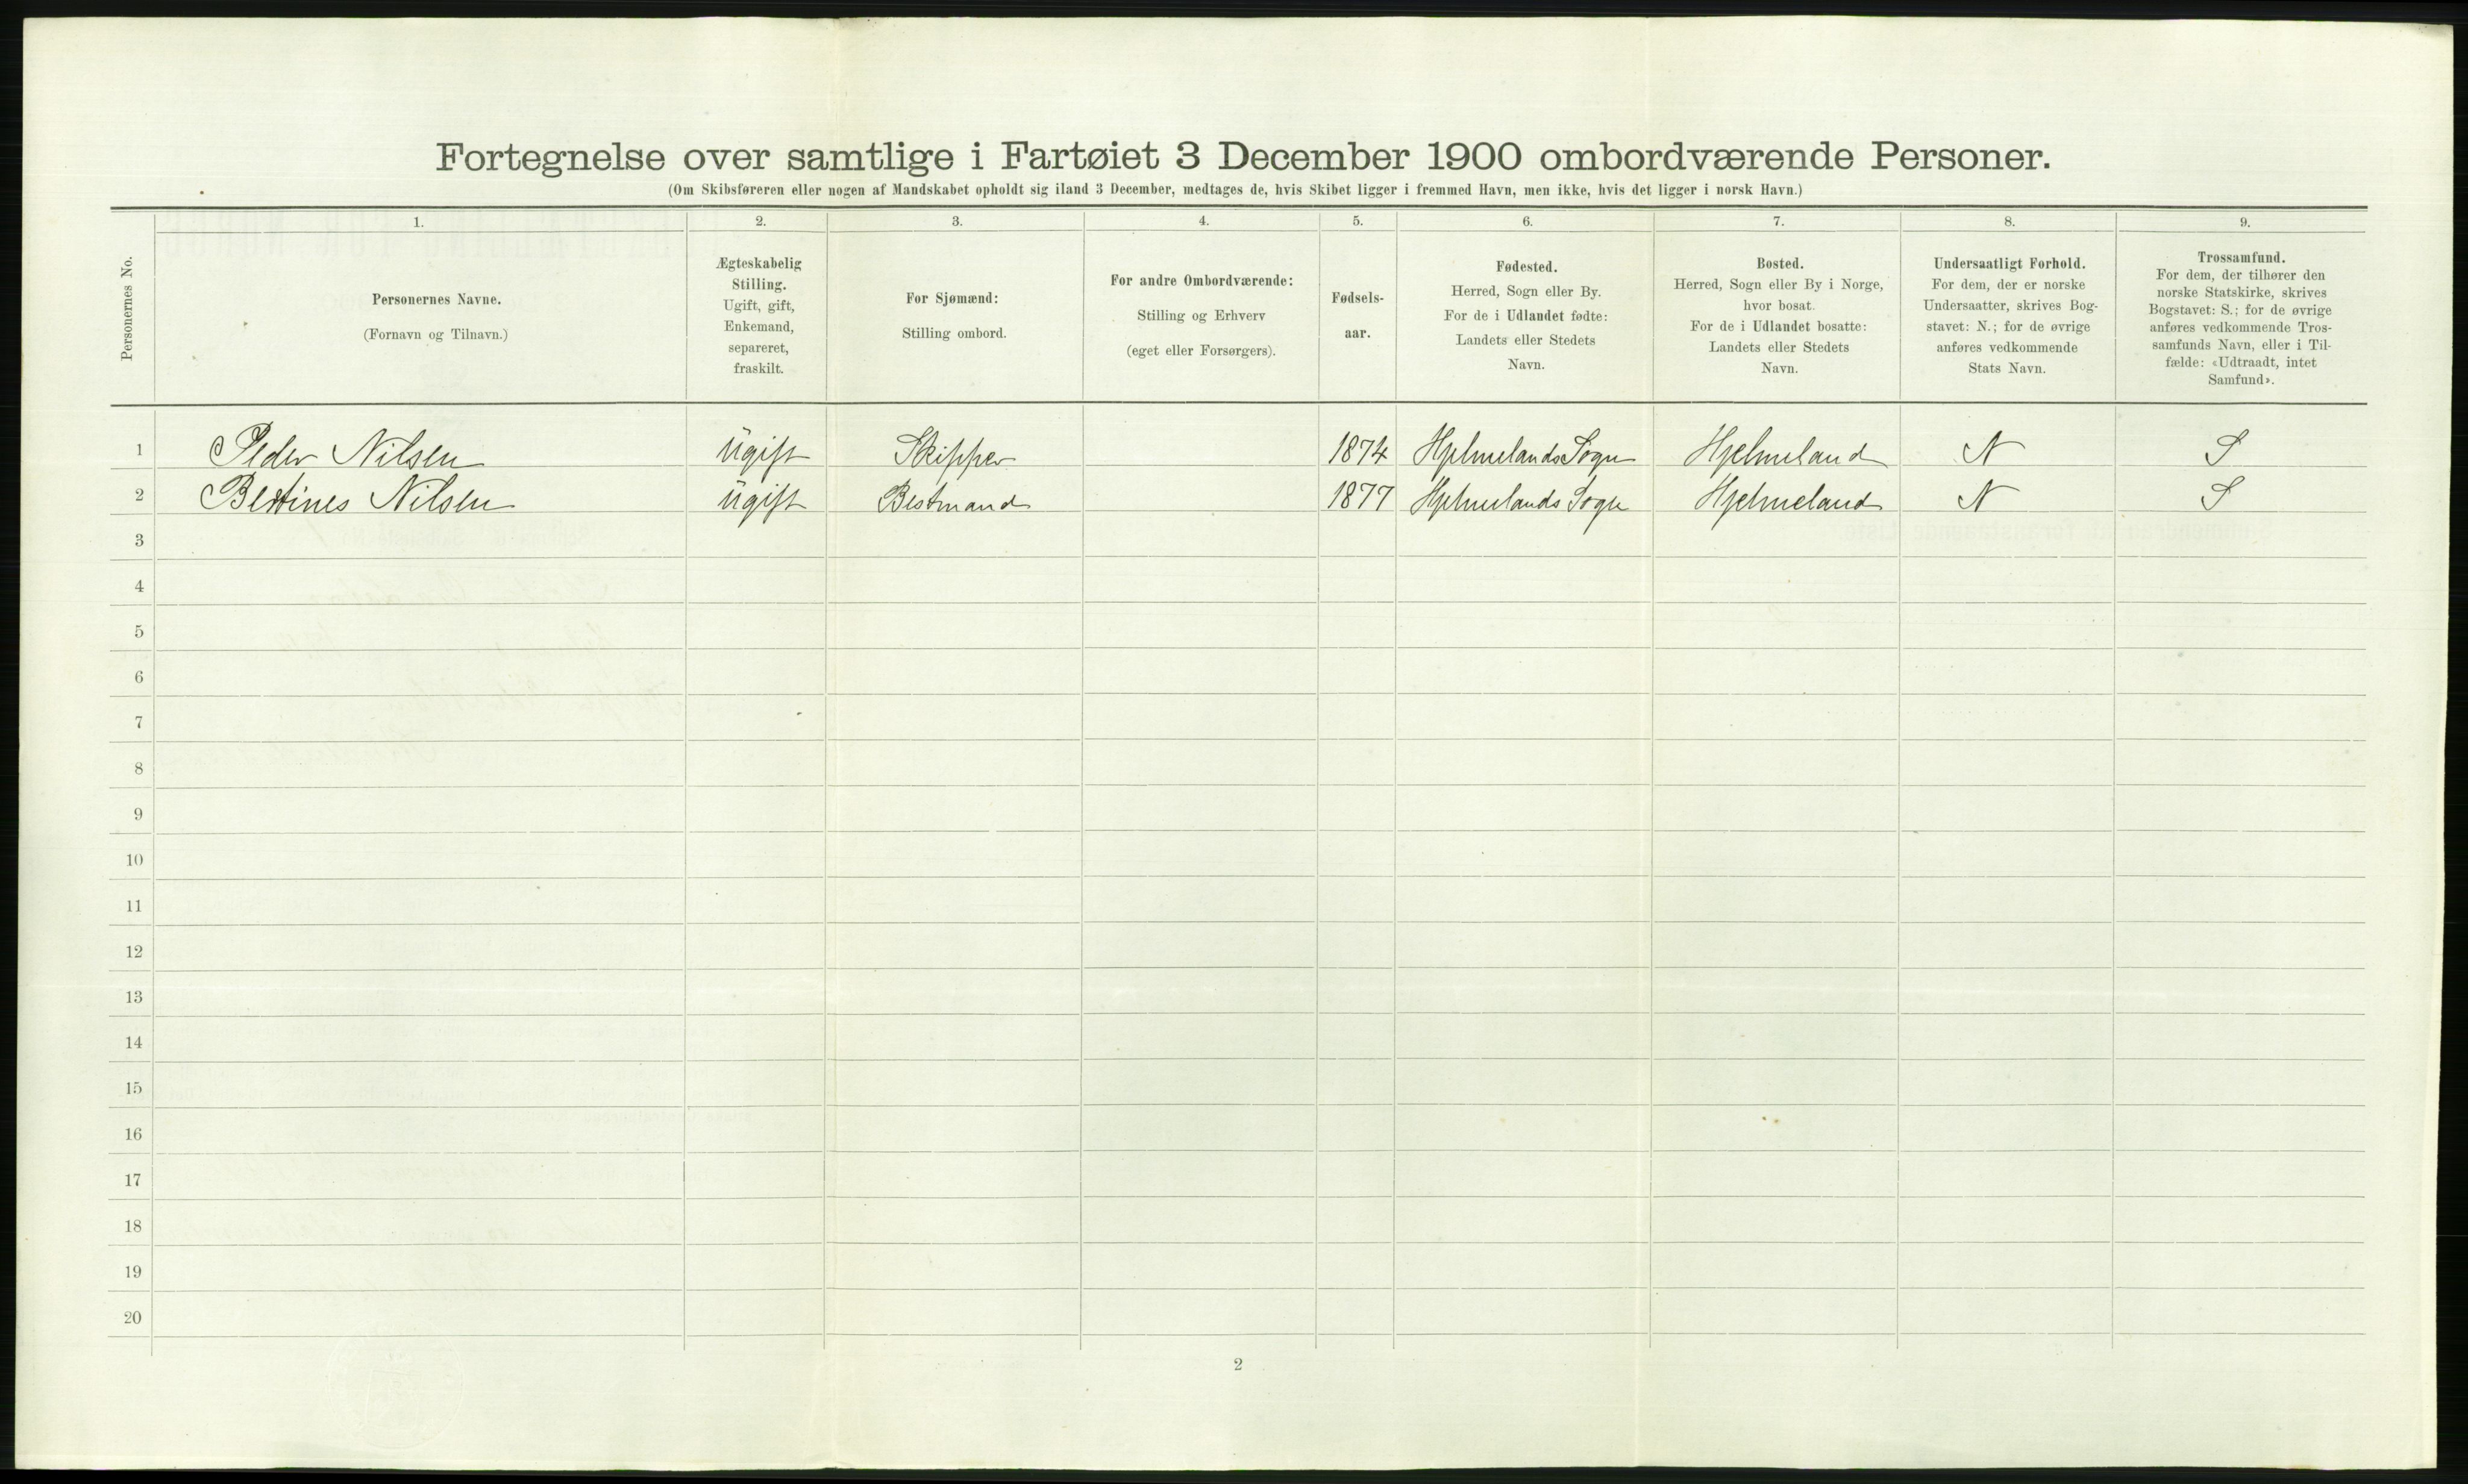 Fortegnelse over samtlige i Fartøiet 3 December 1900 ombordværende Personer.
(Om Skibsføreren eller nogen af Mandskabet opholdt sig iland 3 December, medtages de, hvis Skibet ligger i fremmed Havn, men ikke, hvis det ligger i norsk Havn.)
Personernes No.
1.
Personernes Navne.
(Fornavn og Tilnavn.)
2.
Ægteskabelig
Stilling.
Ugift, gift,
Enkemand,
separeret,
fraskilt.
3.
For Sjømænd:
Stilling ombord.
4.
For andre Ombordværende:
Stilling og Erhverv
(eget eller Forsørgers).
5.
Fødsels-
aar.
6.
Fødested.
Herred, Sogn eller By.
For de i Udlandet fødte:
Landets eller Stedets
Navn.
7.
Bosted.
Herred, Sogn eller By i Norge,
hvor bosat.
For de i Udlandet bosatte:
Landets eller Stedets
Navn.
8.
Undersaatligt Forhold.
For dem, der er norske
Undersaatter, skrives Bog-
stavet: N.; for de øvrige
anføres vedkommende
Stats Navn.
9.
Trossamfund.
For dem, der tilhører den
norske Statskirke, skrives
Bogstavet: S.; for de øvrige
anføres vedkommende Tros-
samfunds Navn, eller i Til-
fælde: «Udtraadt, intet
Samfund».
1 Peder Nilsen ugift Skipper 1874 Hjelmelands Sogn Hjelmeland N S
2 Bertines Nilsen ugift Bestmand 1877 Hjelmelands Sogn Hjelmeland N S
3
4
5
6
7
8
9
10
11
12
13
14
15
16
17
18
19
20
2